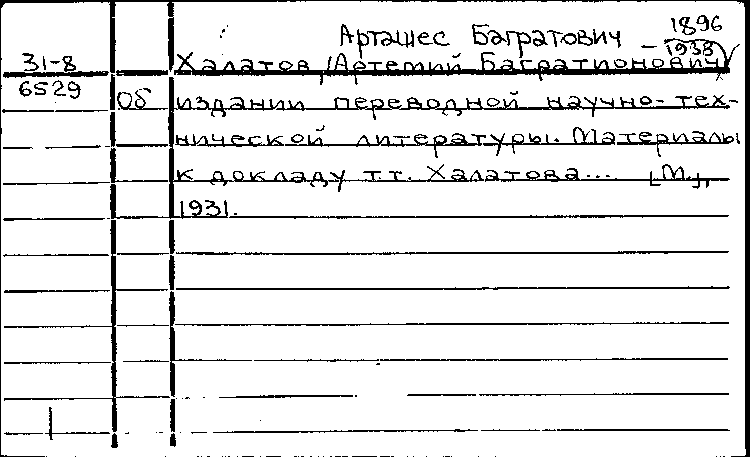 Арташес Багратович 1896
31-8 Халатов, (Артемий Багратионович) – 1938
6529 Об издании переводной научно-тех-
нической литературы. Материалы
к докладу т.т. Халатова... [М.],
1931.